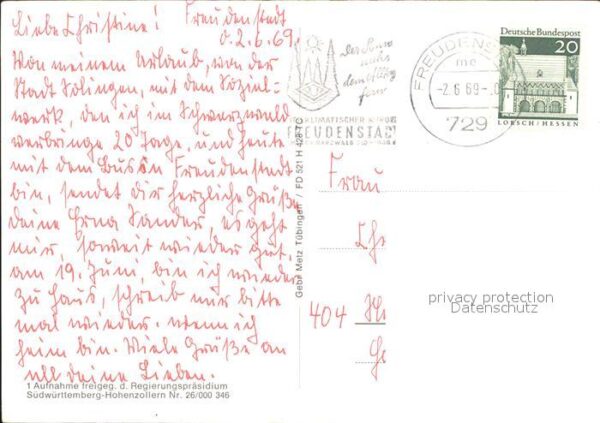 Liebe Christine! Freudenstadt
d. 2.6.69.
Von meinem Urlaub, von der
Stadt Solingen, mit dem Sozial-
werk, den ich im Schwarzwald
verbringe 20 Tage, und heute
mit dem Bus in Freudenstadt
bin, sendet dir herzliche Grüße
deine Erna Sander, es geht
mir, soweit wieder gut,
am 19. Juni, bin ich wieder
zu Haus, schreib mir bitte
mal wieder. wenn ich
heim bin. Viele Grüße an
all deine Lieben.
1 Aufnahme freigeg. d. Regierungspräsidium
Südwürttemberg-Hohenzollern Nr. 26/000 346
Gebr. Metz Tübingen / FD 521 H 428 TC
der Sonne
nahe
dem Alltag
fern
FREUDENSTADT
FREUDENS
-2.6.69-
729
Deutsche Bundespost
20
LORSCH/HESSEN
Frau
Chr
404
privacy protection
Datenschutz